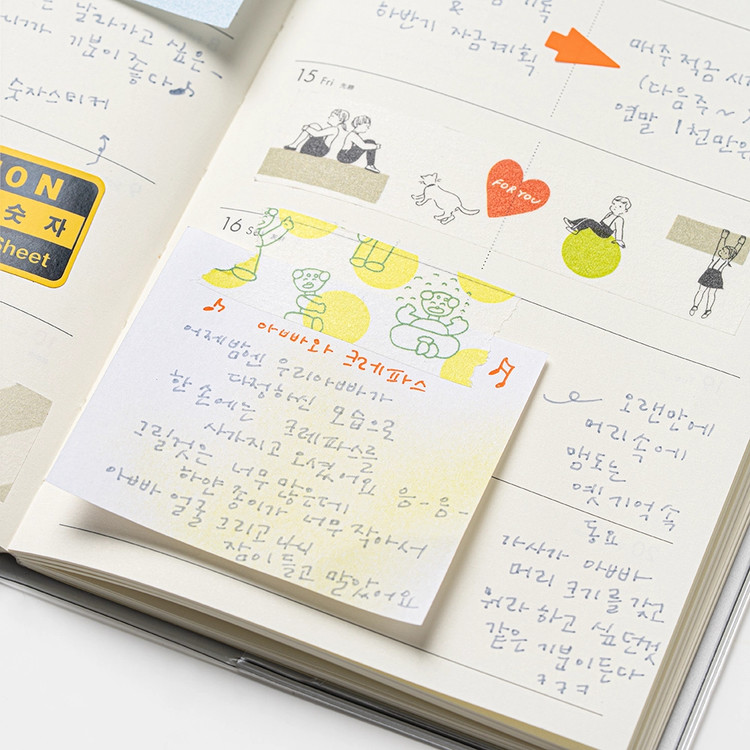 는 날라가고 싶은-
기분이 좋다♪
숫자스티커
ION
숫자
Sheet
&
하반기 자금계획
매주 적금 시
(다음주 ~
연말 1천만원
15 Fri
FOR YOU
16
아빠와 크레파스
어제밤엔 우리아빠가
다정하신 모습으로
한 손에는 크레파스를
사가지고 오셨어요 음-음-
그릴것은 너무 많은데
하얀 종이가 너무 작아서
아빠 얼굴 그리고 나니
잠이들고 말았어요
오랜만에
머리속에
맴도는
옛 기억 속
동요
가사가 아빠
머리 크기를 갖고
뭐라 하고 싶던것
같은 기분이든다
ㅋㅋㅋ